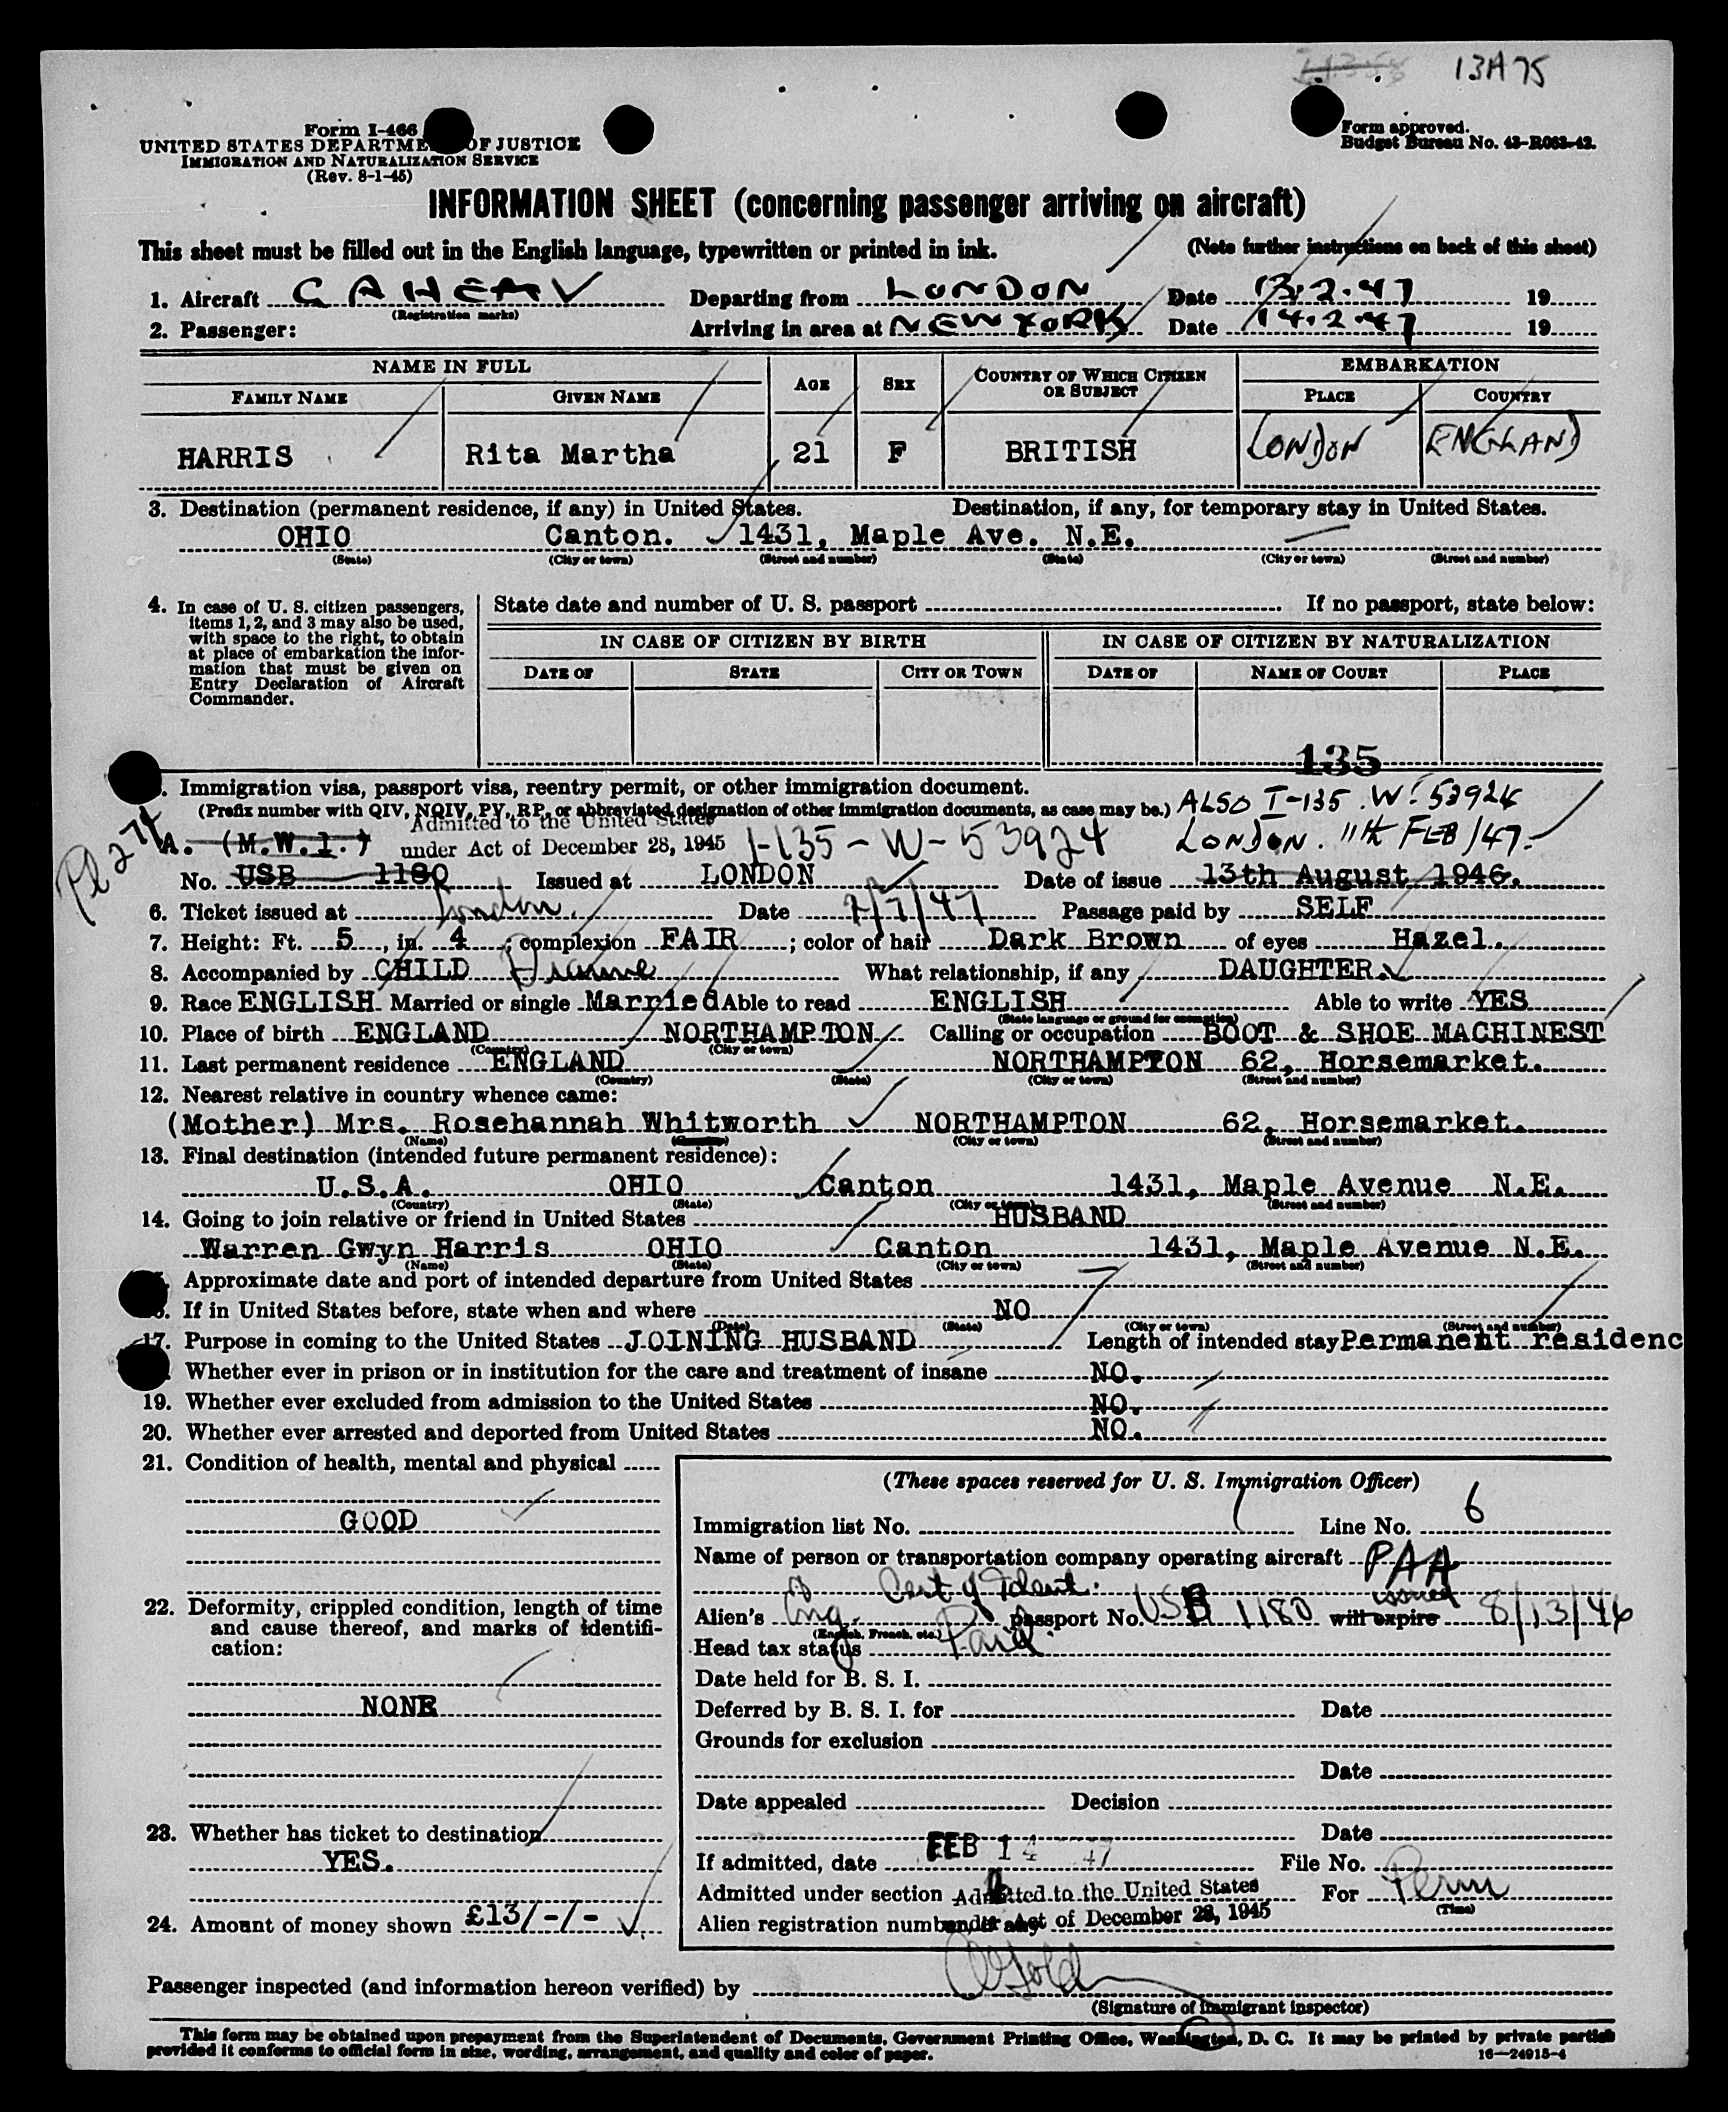 13A75
Form I-466
UNITED STATES DEPARTMENT OF JUSTICE
IMMIGRATION AND NATURALIZATION SERVICE
(Rev. 8-1-45)
Form approved.
Budget Bureau No. 43-R063-42.
INFORMATION SHEET (concerning passenger arriving on aircraft)
This sheet must be filled out in the English language, typewritten or printed in ink. (Note further instructions on back of this sheet)
1. Aircraft GAHEMV Departing from LONDON Date 13.2.47 19
(Registration marks)
2. Passenger: Arriving in area at NEW YORK Date 14.2.47 19
NAME IN FULL AGE SEX COUNTRY OF WHICH CITIZEN OR SUBJECT EMBARKATION
FAMILY NAME GIVEN NAME PLACE COUNTRY
HARRIS Rita Martha 21 F BRITISH LONDON ENGLAND
3. Destination (permanent residence, if any) in United States. Destination, if any, for temporary stay in United States.
OHIO Canton. 1431, Maple Ave. N.E.
(State) (City or town) (Street and number) (State) (City or town) (Street and number)
4. In case of U. S. citizen passengers, items 1, 2, and 3 may also be used, with space to the right, to obtain at place of embarkation the information that must be given on Entry Declaration of Aircraft Commander.
State date and number of U. S. passport If no passport, state below:
IN CASE OF CITIZEN BY BIRTH IN CASE OF CITIZEN BY NATURALIZATION
DATE OF STATE CITY OR TOWN DATE OF NAME OF COURT PLACE
135
. Immigration visa, passport visa, reentry permit, or other immigration document.
(Prefix number with QIV, NQIV, PV, RP, or abbreviated designation of other immigration documents, as case may be.) ALSO I-135. W. 53924
LONDON. 11th FEB/47.
A. (M.W.1.) Admitted to the United States
under Act of December 28, 1945 I-135-W-53924
No. USB 1180 Issued at LONDON Date of issue 13th August 1946.
6. Ticket issued at London Date 2/7/47 Passage paid by SELF
7. Height: Ft. 5, in. 4; complexion FAIR; color of hair Dark Brown of eyes Hazel.
8. Accompanied by CHILD Dianne What relationship, if any DAUGHTER.
9. Race ENGLISH Married or single Married Able to read ENGLISH Able to write YES
(State language or ground for exemption)
10. Place of birth ENGLAND NORTHAMPTON Calling or occupation BOOT & SHOE MACHINEST
(Country) (City or town)
11. Last permanent residence ENGLAND NORTHAMPTON 62, Horsemarket.
(Country) (State) (City or town) (Street and number)
12. Nearest relative in country whence came:
(Mother) Mrs. Rosehannah Whitworth NORTHAMPTON 62, Horsemarket.
(Name) (Country) (City or town) (Street and number)
13. Final destination (intended future permanent residence):
U.S.A. OHIO Canton 1431, Maple Avenue N.E.
(Country) (State) (City or town) (Street and number)
14. Going to join relative or friend in United States HUSBAND
Warren Gwyn Harris OHIO Canton 1431, Maple Avenue N.E.
(Name) (State) (City or town) (Street and number)
Approximate date and port of intended departure from United States
If in United States before, state when and where NO
(Date) (State) (City or town) (Street and number)
17. Purpose in coming to the United States JOINING HUSBAND Length of intended stay Permanent residenc
Whether ever in prison or in institution for the care and treatment of insane NO.
19. Whether ever excluded from admission to the United States NO.
20. Whether ever arrested and deported from United States NO.
21. Condition of health, mental and physical
GOOD
22. Deformity, crippled condition, length of time and cause thereof, and marks of identification:
NONE
23. Whether has ticket to destination
YES.
24. Amount of money shown £13/-/-
(These spaces reserved for U. S. Immigration Officer)
Immigration list No. 1 Line No. 6
Name of person or transportation company operating aircraft PAA
Cert of Ident. issued
Alien's Eng. passport No. USB 1180 will expire 8/13/46
(English, French, etc.)
Head tax status Paid
Date held for B. S. I.
Deferred by B. S. I. for Date
Grounds for exclusion
Date
Date appealed Decision
Date
If admitted, date FEB 14 47 File No.
Admitted under section Admitted to the United States For Perm
(Time)
Alien registration number, if any under Act of December 28, 1945
Passenger inspected (and information hereon verified) by
(Signature of immigrant inspector)
This form may be obtained upon prepayment from the Superintendent of Documents, Government Printing Office, Washington, D. C. It may be printed by private parties
provided it conforms to official form in size, wording, arrangement, and quality and color of paper.
16—24915-4